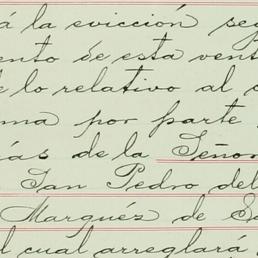 á la evicción seg
ento de esta vent
e lo relativo al c
ma por parte
ías de la Señor
San Pedro del
Marquéz de S
l cuál arreglará